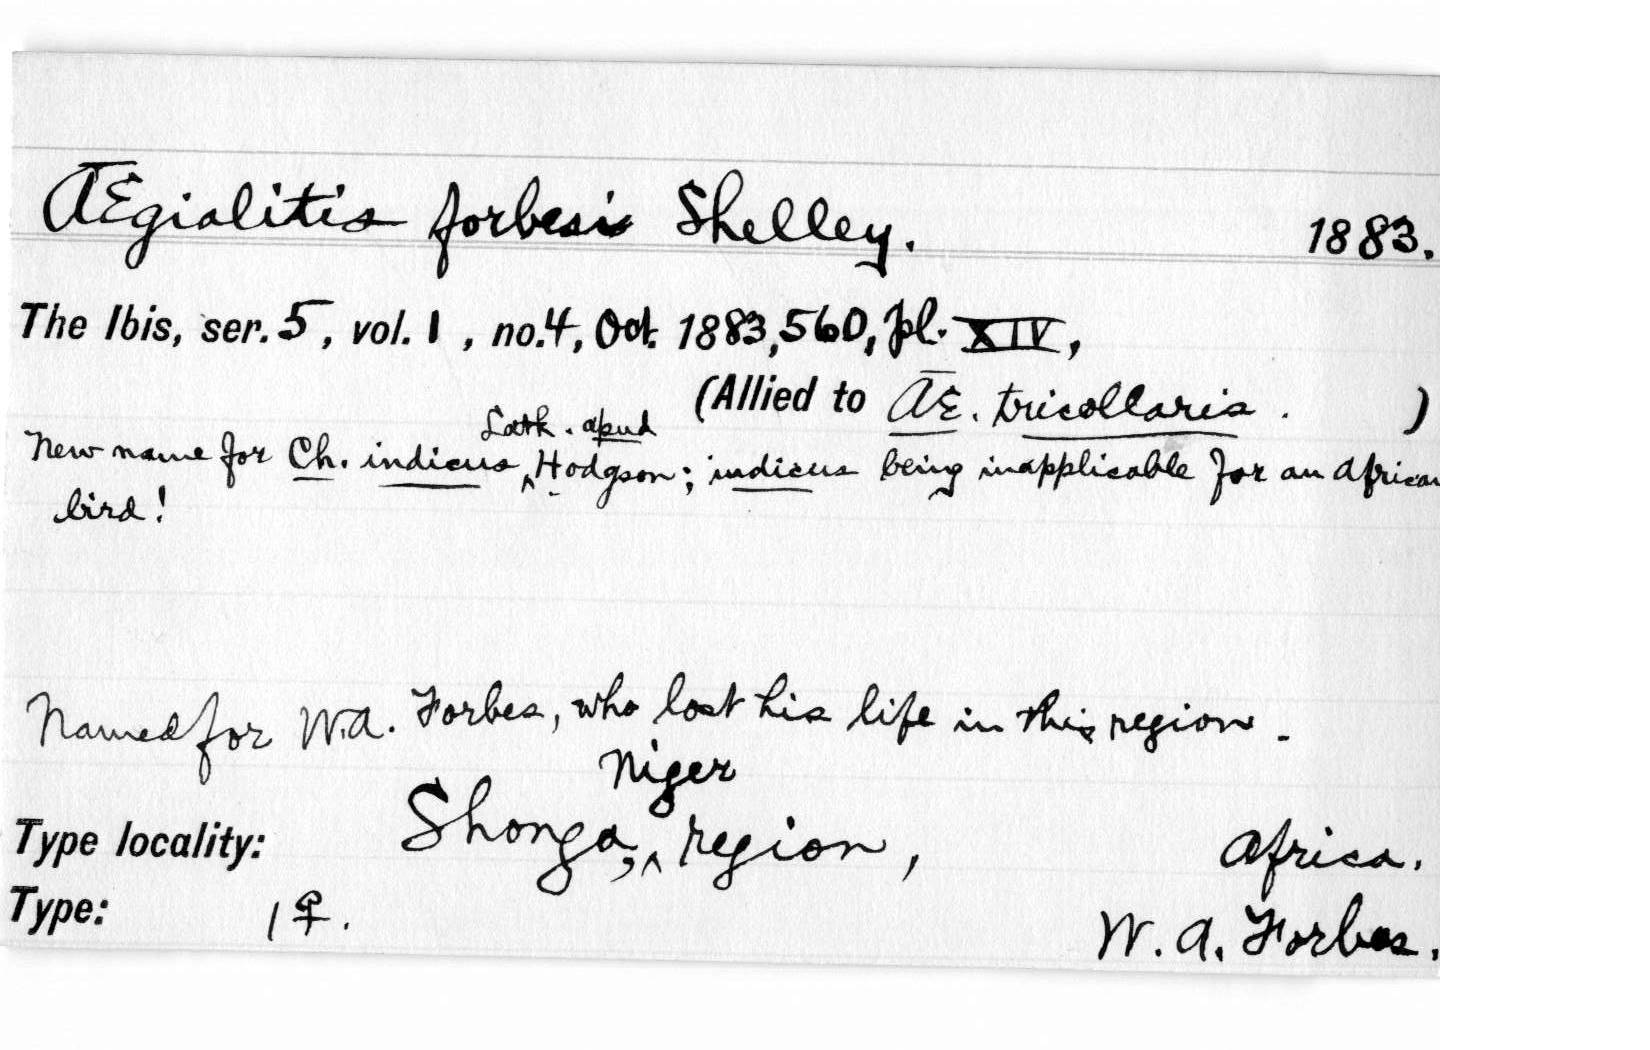 Ægialitis forbesi Shelley. 1883.
The Ibis, ser. 5, vol. 1, no. 4, Oct. 1883, 560, pl. XIV,
(Allied to Æ. tricollaris. )
New name for Ch. indicus ‸ Lath. apud Hodgson; indicus being inapplicable for an African
bird!
Named for W.A. Forbes, who lost his life in this region.
Type locality: Shonga, ‸ Niger region, Africa.
Type: 1 ♀. W. A. Forbes.